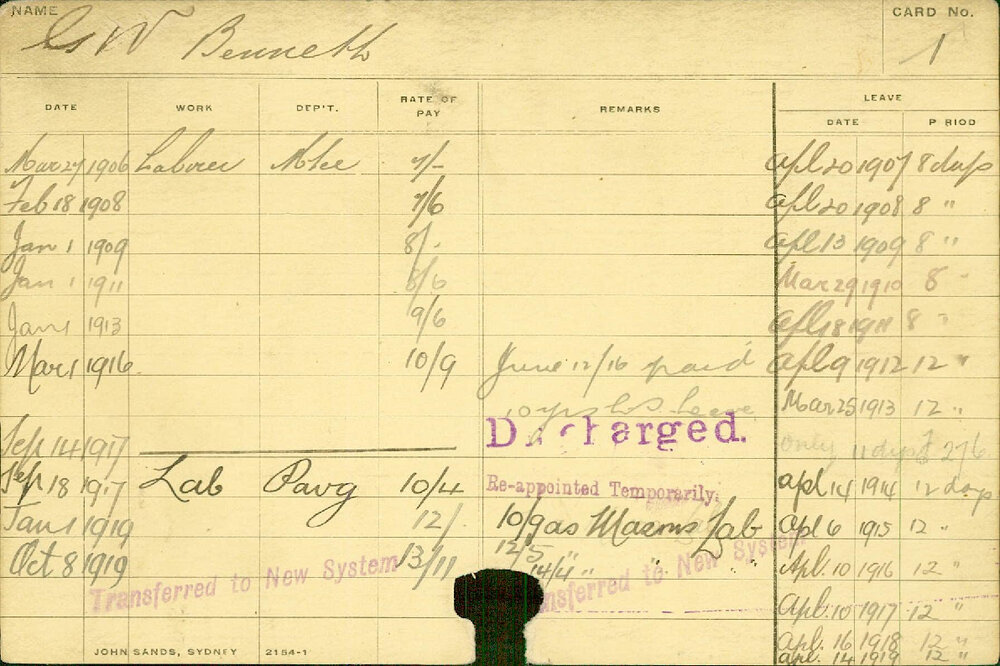 NAME
G W Benneth
CARD No.
1
DATE WORK DEP'T. RATE OF PAY REMARKS LEAVE
DATE P RIOD
Mar 27 1906 Labourer 7/- Apl 20 1907 8 days
Feb 18 1908 7/6 Apl 20 1908 8 "
Jan 1 1909 8/- Apl 13 1909 8 "
Jan 1 1911 8/6 Mar 29 1910 8 "
Jan 1 1913 9/6 Apl 18 1911 8 "
Mar 1 1916 10/9 June 12/16 paid Apl 9 1912 12 "
10 yrs leave Mar 25 1913 12 "
Discharged.
Sep 14 1917 only 11 days 276
Sep 18 1917 Lab Pavg 10/4 Re-appointed Temporarily. Apl 14 1914 12 days
Jan 1 1919 12/- 10/9 as Masons Lab Apl 6 1915 12 "
Oct 8 1919 13/11 12/5 " " Apl. 10 1916 12 "
14/4 "
Transferred to New System
Transferred to New System
Apl. 10 1917 12 "
Apl. 16 1918 12 "
Apl. 14 1919 12 "
JOHN SANDS, SYDNEY 2154-1